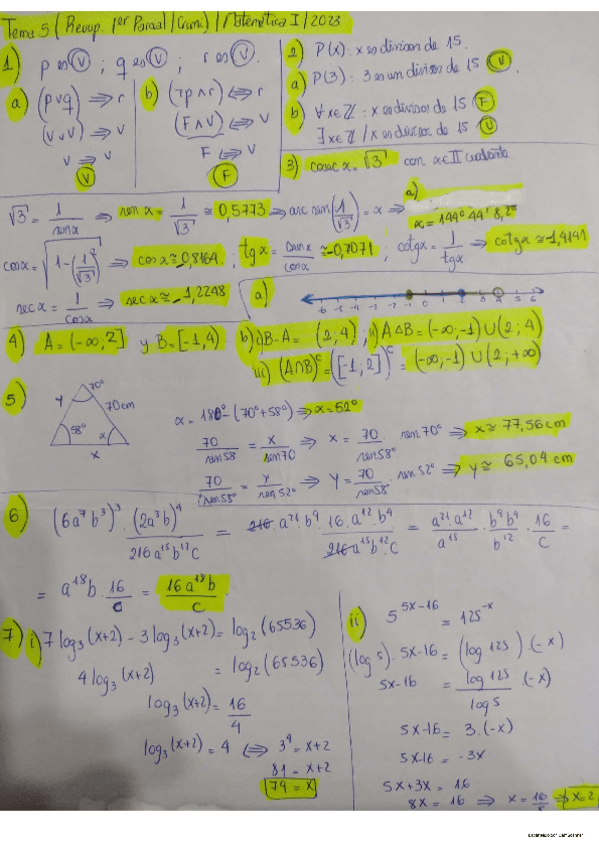 Tema 5 ( Recup. 1er Parcial / (Com.) / Matemática I / 2023
1) p es V ; q es V ; r es V.
a) (p∨q) ⟹ r
(V∨V) ⟹ V
V ⟹ V
V
b) (¬p∧r) ⟺ r
(F∧V) ⟺ V
F ⟺ V
F
2) P(x): x es divisor de 15.
a) P(3): 3 es un divisor de 15 V
b) ∀x∈ℤ : x es divisor de 15 F
∃x∈ℤ / x es divisor de 15 V
3) cosec α = √3 con α∈II cuadrante
√3 = 1/sen α ⟹ sen α = 1/√3 ≅ 0,5773 ⟹ arc sen(1/√3) = α ⟹ a) α = 144° 44' 8,2"
cos α = √(1-(1/√3)²) ⟹ cos α ≅ -0,8164 ; tg α = sen α/cos α ≅ -0,7071 ; cotg α = 1/tg α ⟹ cotg α ≅ -1,4141
sec α = 1/cos α ⟹ sec α ≅ -1,2248
a) -6 -5 -4 -3 -2 -1 0 1 2 3 4 5 6
4) A = (-∞, 2] y B = [-1, 4) b) i) B-A = (2; 4) ; ii) A△B = (-∞; -1) ∪ (2; 4)
iii) (A∩B)ᶜ = ([-1; 2])ᶜ = (-∞; -1) ∪ (2; +∞)
5) y 70° 70cm 58° α x
α = 180° - (70°+58°) ⟹ α = 52°
70/sen 58 = x/sen 70 ⟹ x = 70/sen 58° . sen 70° ⟹ x ≅ 77,56 cm
70/sen 58° = y/sen 52° ⟹ y = 70/sen 58° . sen 52° ⟹ y ≅ 65,04 cm
6) (6a⁷b³)³ . (2a³b)⁴/216a¹⁵b¹²c = 216 . a²¹ b⁹ . 16 . a¹² . b⁴/216 a¹⁵ b¹² . c = a²¹ a¹²/a¹⁵ . b⁹ b⁴/b¹² . 16/c =
= a¹⁸ b . 16/c = 16a¹⁸b/c .
7) i) 7 log₃(x+2) - 3 log₃(x+2) = log₂(65536)
4 log₃(x+2) = log₂(65536)
log₃(x+2) = 16/4
log₃(x+2) = 4 ⟺ 3⁴ = x+2
81 = x+2
79 = x
ii) 5^(5x-16) = 125^(-x)
(log 5) . 5x-16 = (log 125) . (-x)
5x-16 = log 125/log 5 (-x)
5x-16 = 3 . (-x)
5x-16 = -3x
5x+3x = 16
8x = 16 ⟹ x = 16/8 ⟹ x = 2